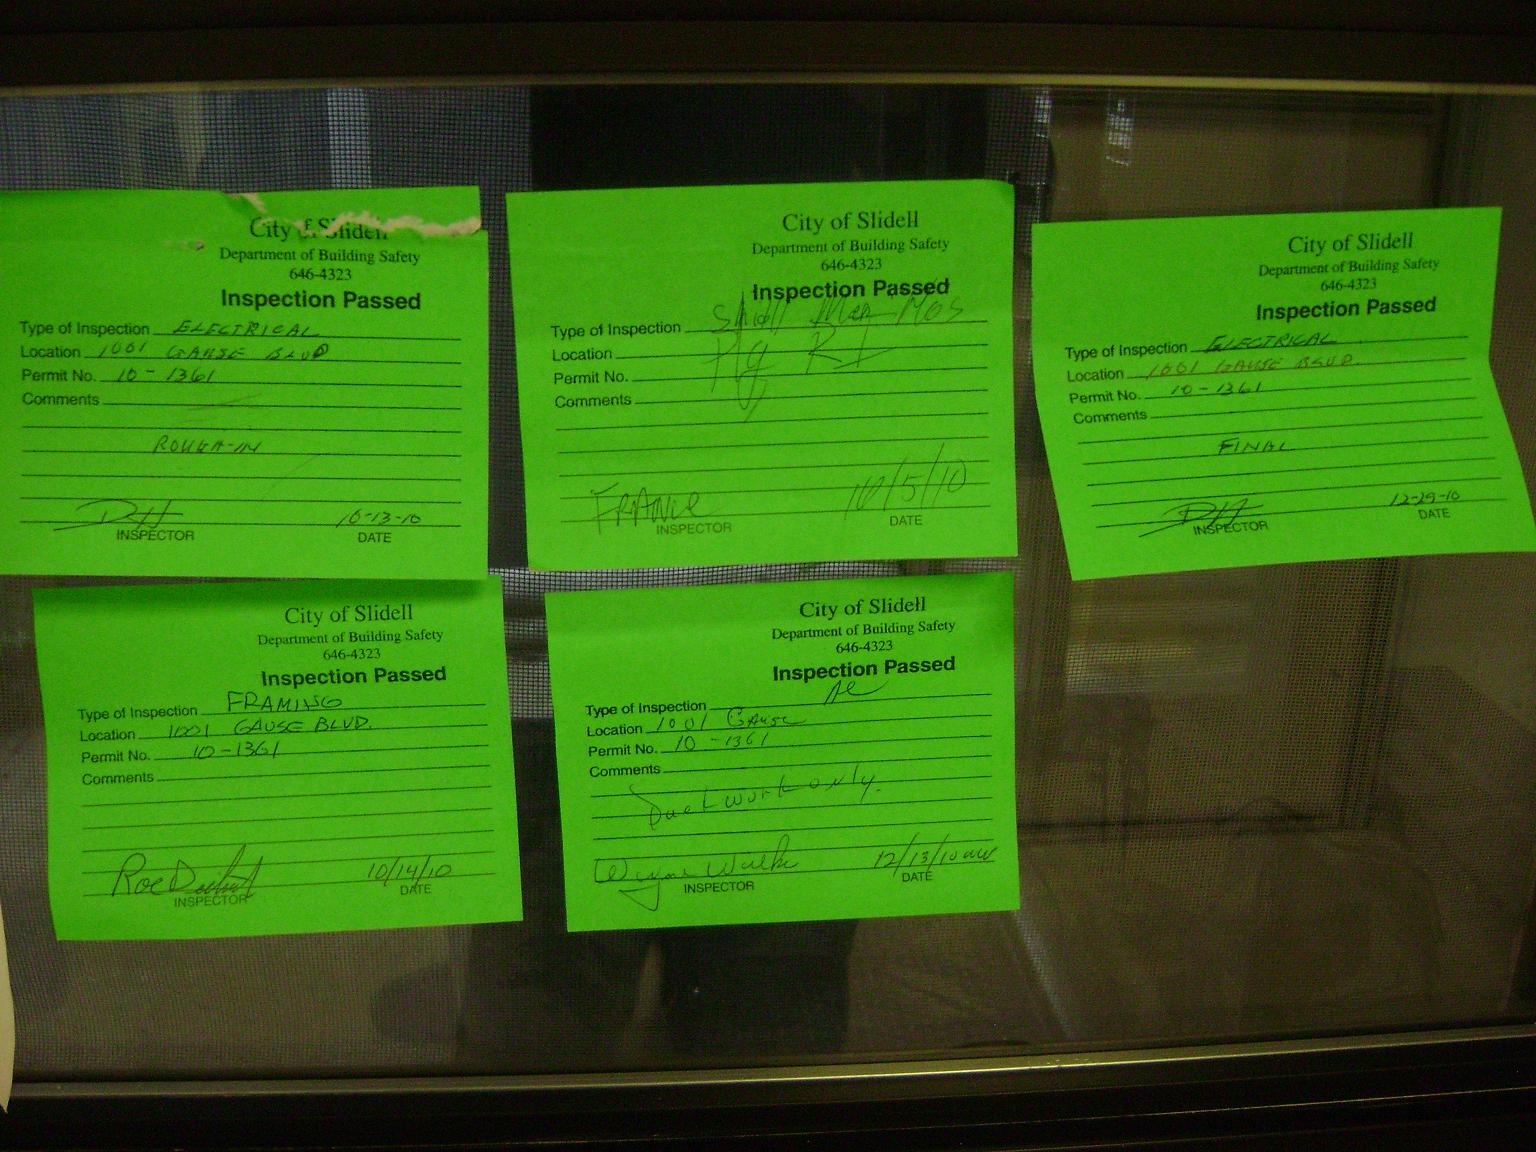 City of Slidell
Department of Building Safety
646-4323
Inspection Passed
Type of Inspection ELECTRICAL
Location 1001 GAUSE BLVD
Permit No. 10-1361
Comments
ROUGH-IN
DH 10-13-10
INSPECTOR DATE
City of Slidell
Department of Building Safety
646-4323
Inspection Passed
Type of Inspection Slidell Mem Hos
Location Plg RI
Permit No.
Comments
FRANK 10/5/10
INSPECTOR DATE
City of Slidell
Department of Building Safety
646-4323
Inspection Passed
Type of Inspection ELECTRICAL
Location 1001 GAUSE BLVD.
Permit No. 10-1361
Comments
FINAL
DH 12-29-10
INSPECTOR DATE
City of Slidell
Department of Building Safety
646-4323
Inspection Passed
Type of Inspection FRAMING
Location 1001 GAUSE BLVD.
Permit No. 10-1361
Comments
10/14/10
INSPECTOR DATE
City of Slidell
Department of Building Safety
646-4323
Inspection Passed
Type of Inspection AC
Location 1001 Gause
Permit No. 10-1361
Comments
Duct work only.
Wayne 12/13/10
INSPECTOR DATE